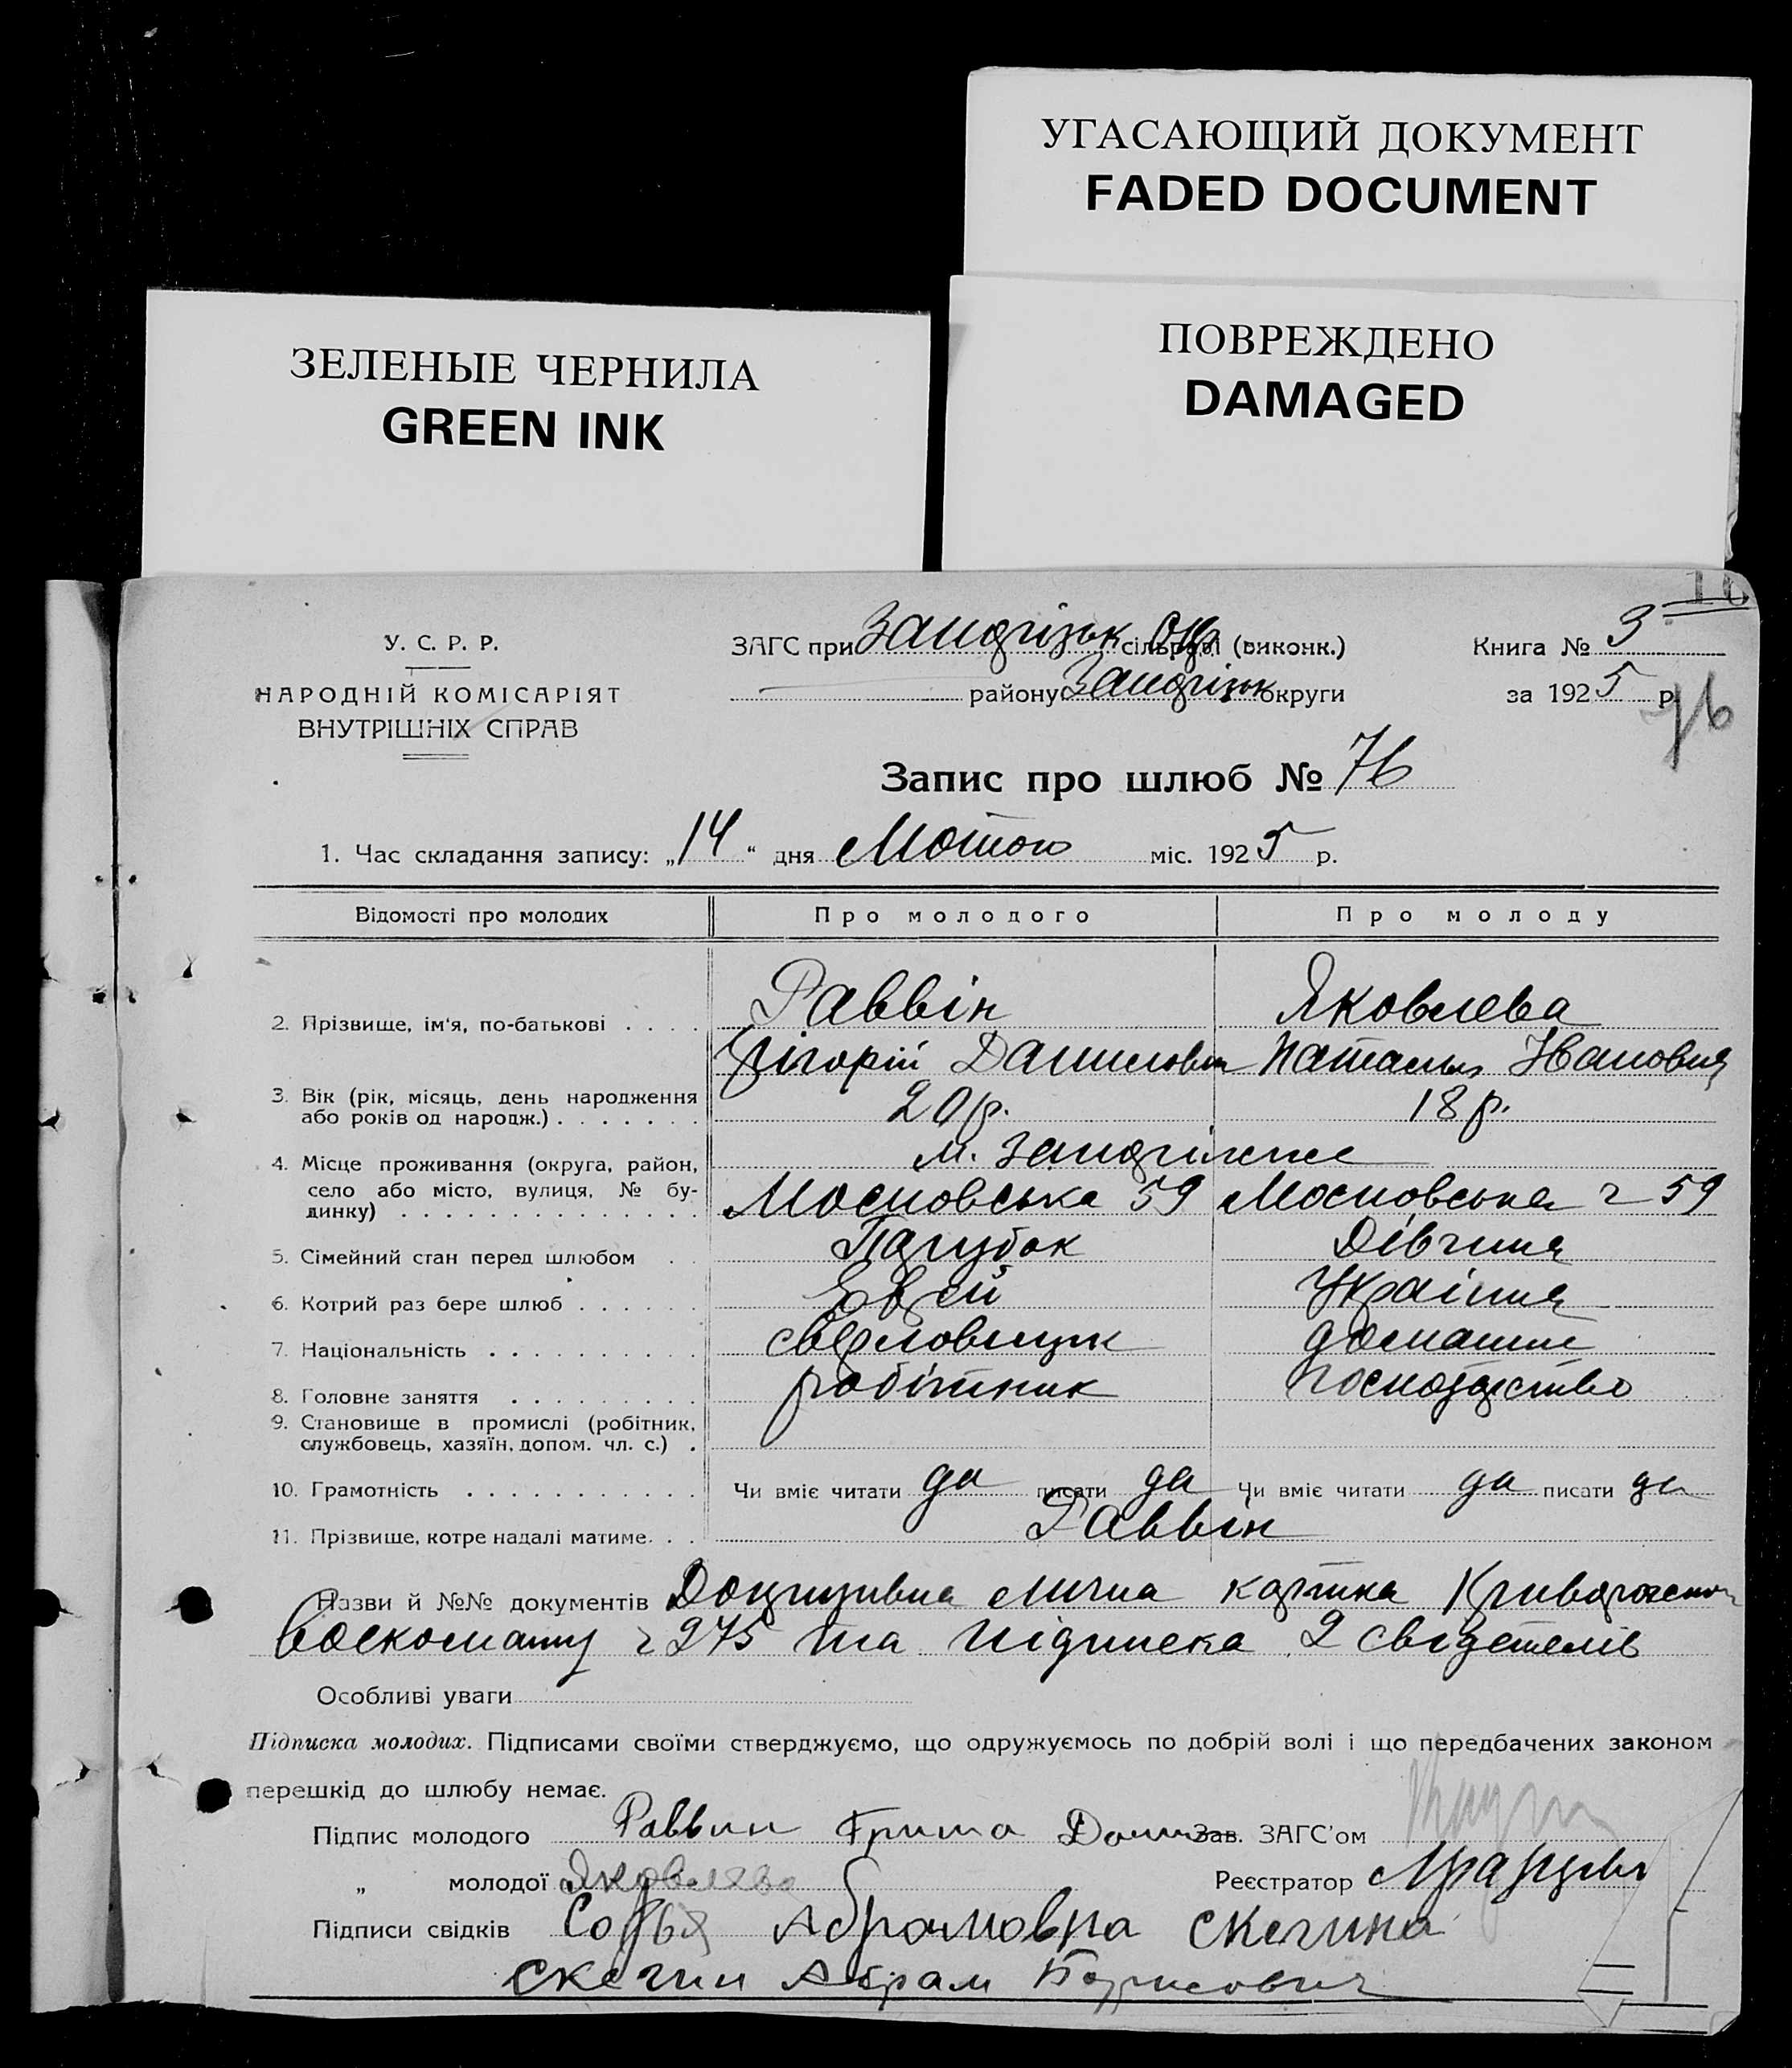 УГАСАЮЩИЙ ДОКУМЕНТ
FADED DOCUMENT
ЗЕЛЕНЫЕ ЧЕРНИЛА
GREEN INK
ПОВРЕЖДЕНО
DAMAGED
У. С. Р. Р.
НАРОДНІЙ КОМІСАРІЯТ
ВНУТРІШНІХ СПРАВ
ЗАГС при Запоріжськ Окр сільраді (виконк.)
району Запоріжськ округи
Книга № 3
за 1925 р.
76
Запис про шлюб № 76
1. Час складання запису: „14“ дня Лютого міс. 1925 р.
Відомості про молодих Про молодого Про молоду
2. Прізвище, ім'я, по-батькові . . . . Раввін Яковлева
Грігорій Данилович Наталія Івановна
3. Вік (рік, місяць, день народження
або років од народж.) . . . . . . . 20 р. 18 р.
4. Місце проживання (округа, район,
село або місто, вулиця, № бу-
динку) . . . . . . . . . . . . . . .
м. Запоріжже
Московська 59 Московська 59
5. Сімейний стан перед шлюбом . . Парубок Дівчина
6. Котрий раз бере шлюб . . . . . . Єврей Українка
7. Національність . . . . . . . . . . сверловщик домашнє
8. Головне заняття . . . . . . . . . робітник господарство
9. Становище в промислі (робітник,
службовець, хазяїн, допом. чл. с.) .
10. Грамотність . . . . . . . . . . . Чи вміє читати да писати да Чи вміє читати да писати да
11. Прізвище, котре надалі матиме . . . Раввін
Назви й №№ документів Допризивна лична картка
275 та підписка 2 свідетелів
Особливі уваги
Підписка молодих. Підписами своїми стверджуємо, що одружуємось по добрій волі і що передбачених законом
перешкід до шлюбу немає.
Підпис молодого Раввин Гриша Зав. ЗАГС'ом
„ молодої Яковлева Реєстратор
Підписи свідків Софья Абрамовна Скегина
Скегин Абрам Борисович